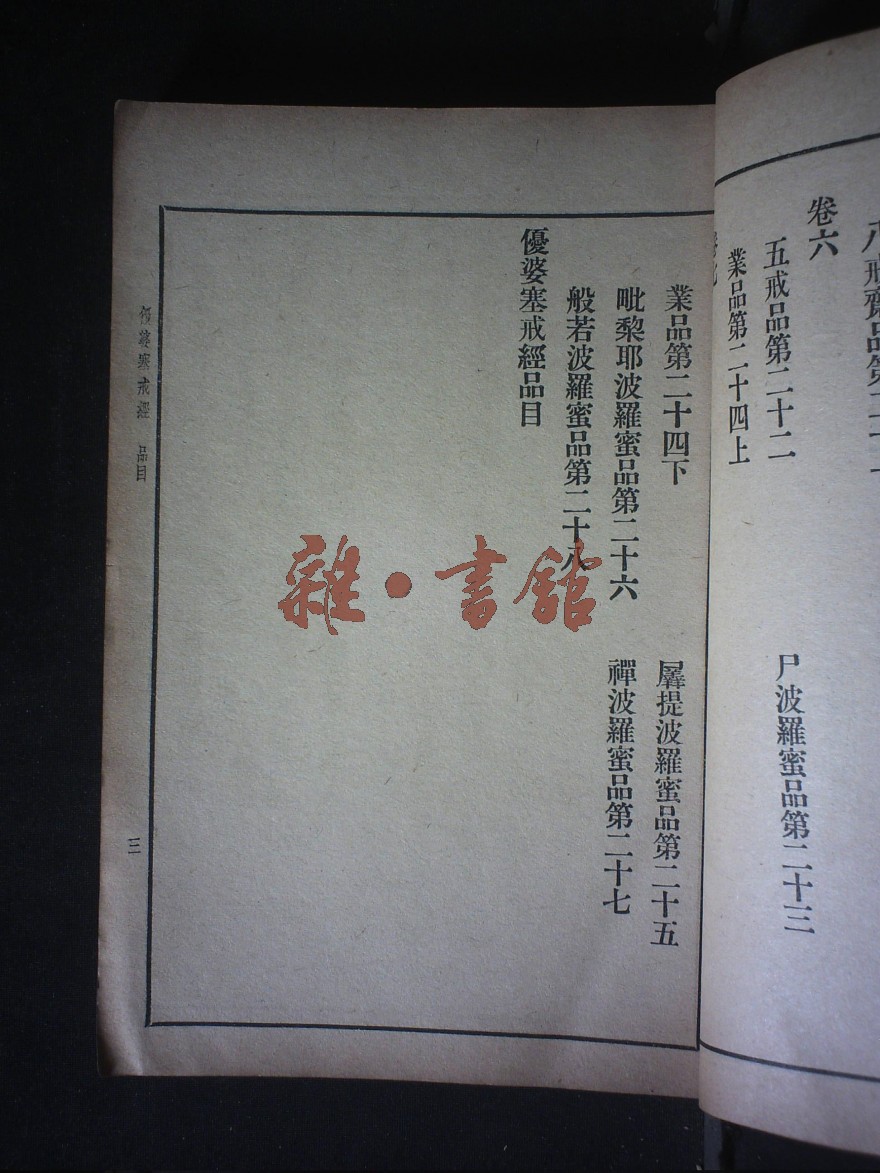 卷六
五戒品第二十二
尸波羅蜜品第二十三
業品第二十四上
業品第二十四下
羼提波羅蜜品第二十五
毗棃耶波羅蜜品第二十六
禪波羅蜜品第二十七
般若波羅蜜品第二十八
優婆塞戒經品目
優婆塞戒經 品目
三
雜·書館